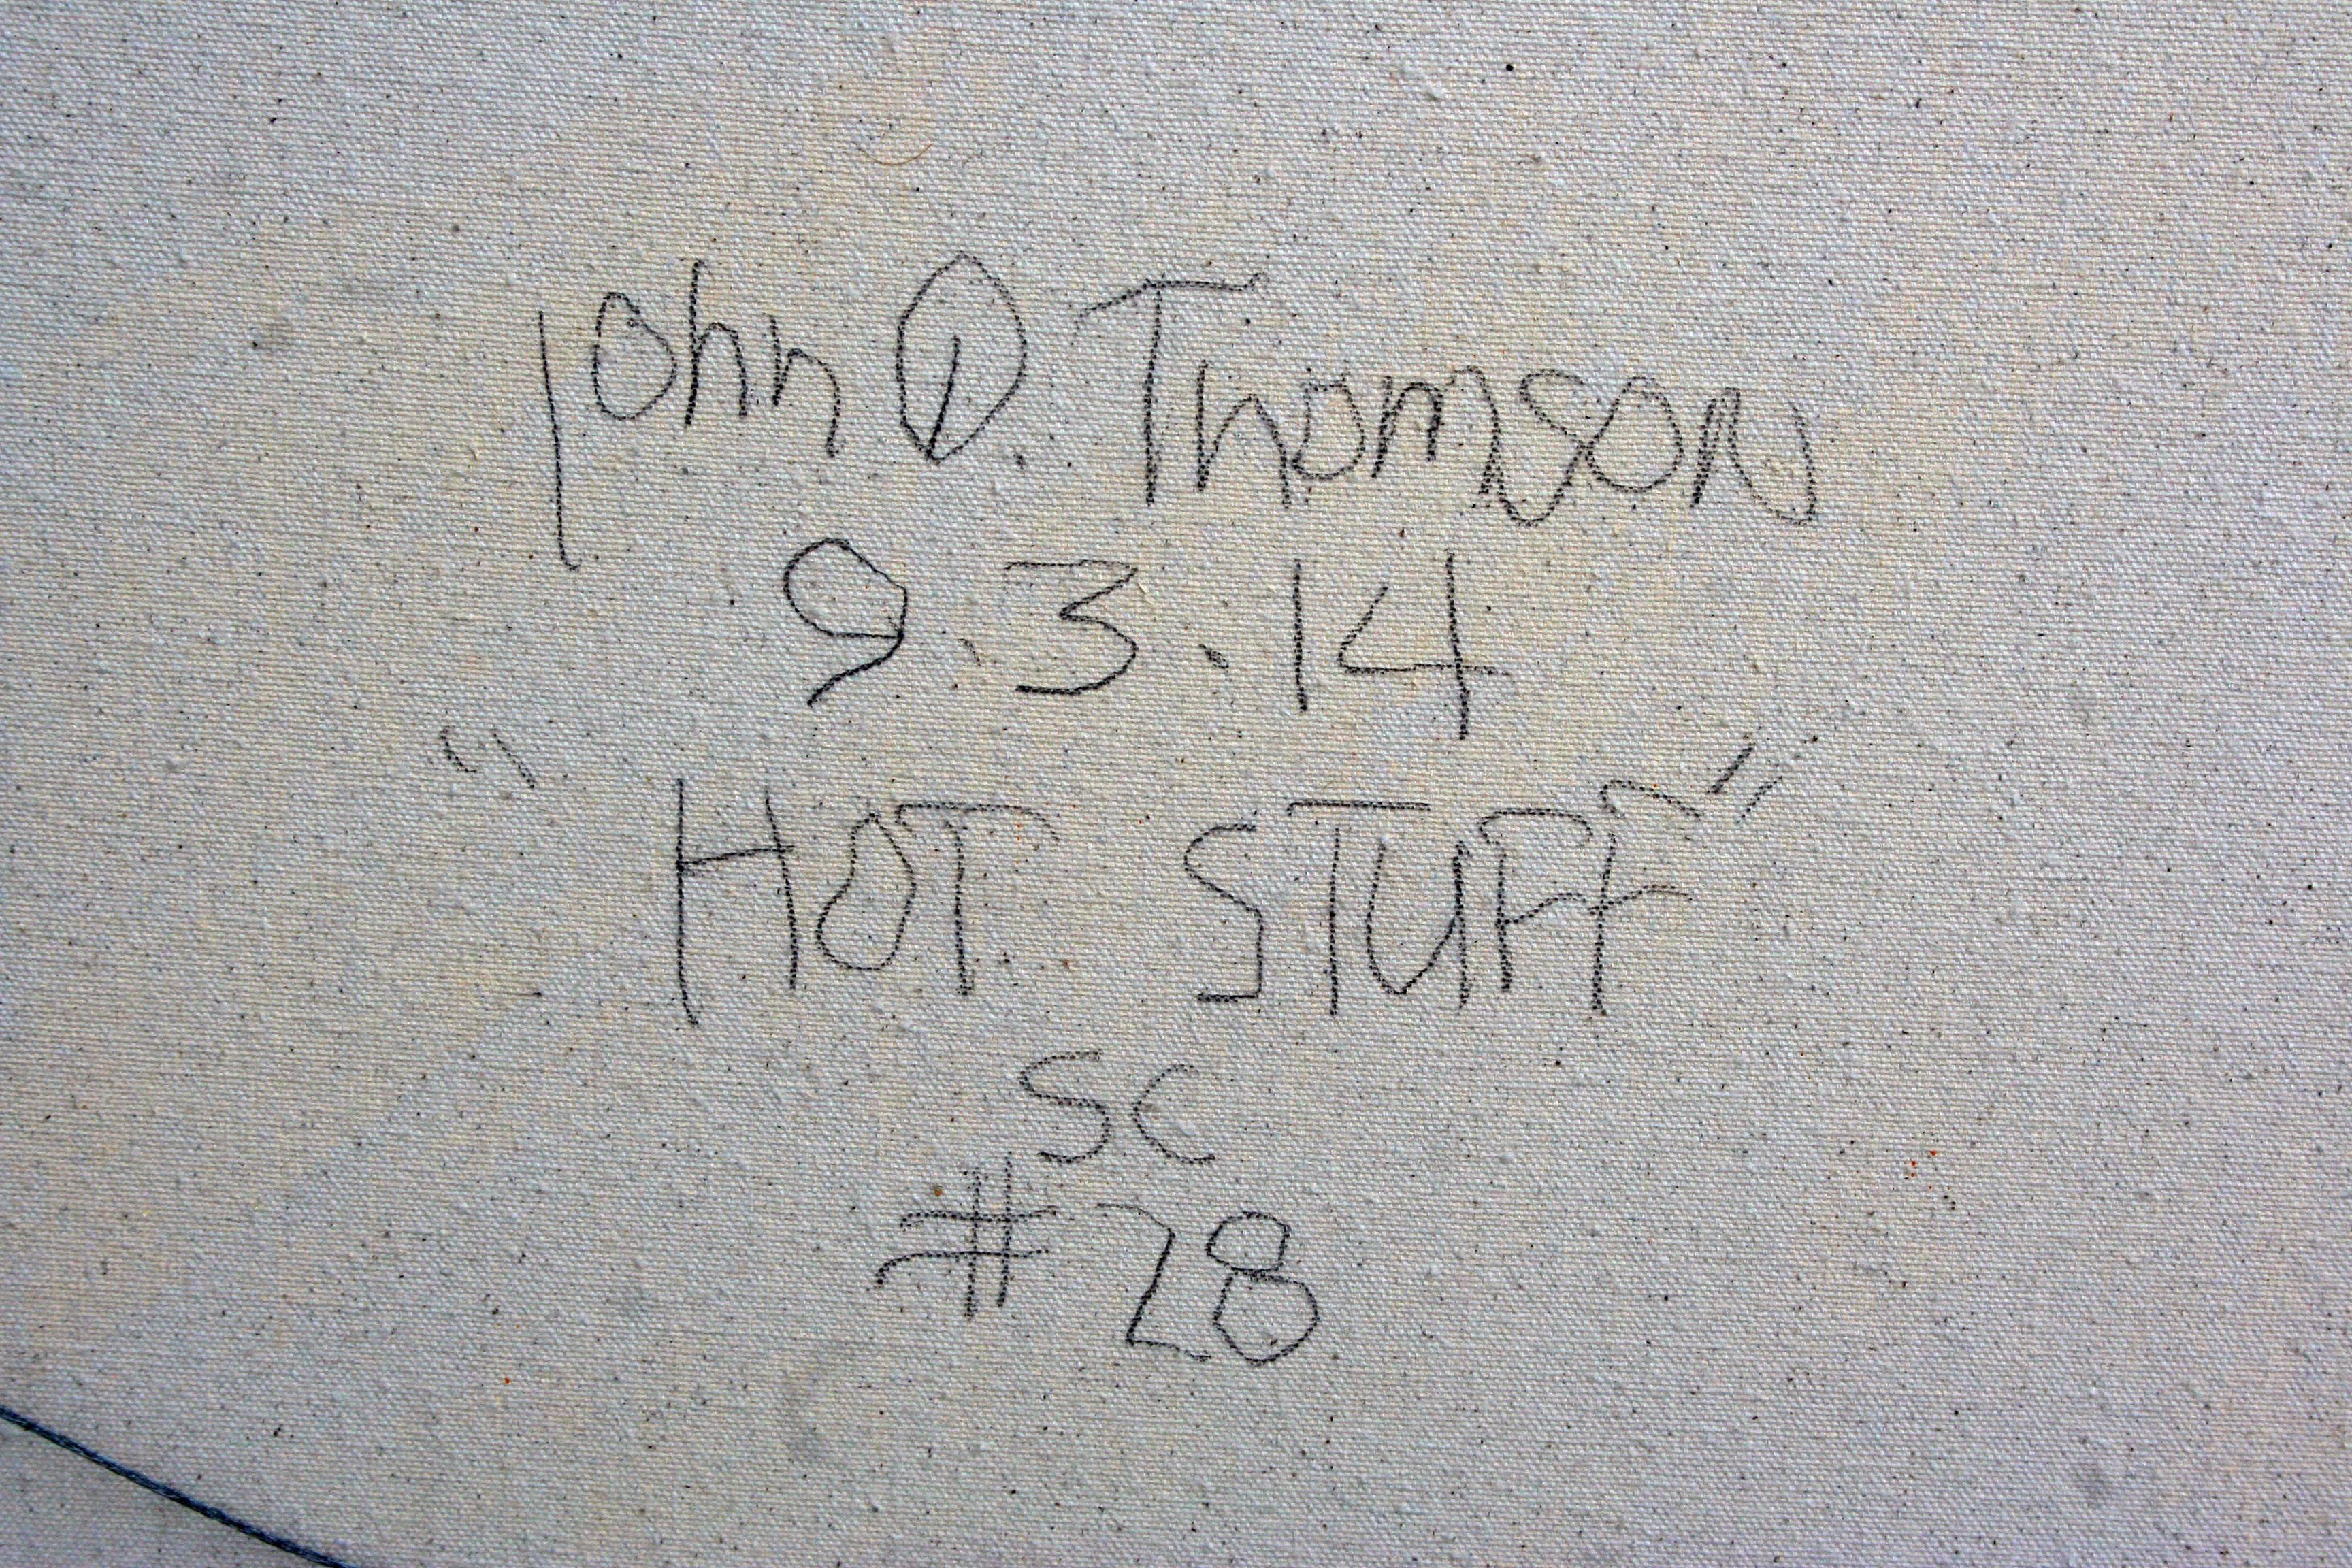 John D. Thomson
9.3.14
"HOT STUFF"
SC
#28